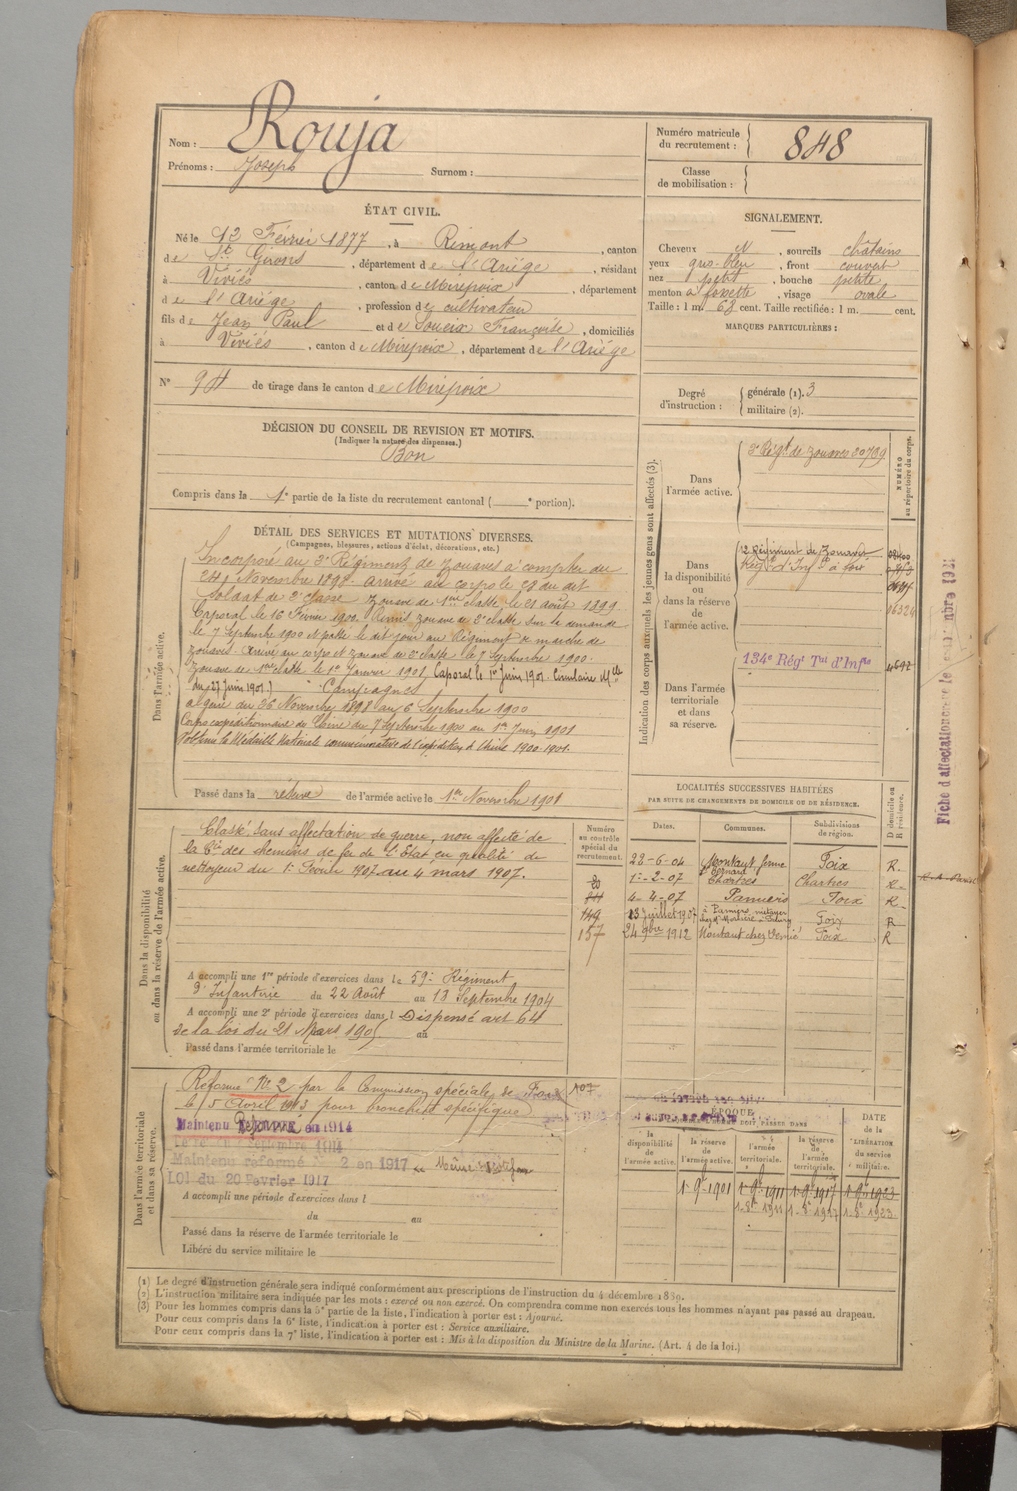 Nom : Rouja
Prénoms : Joseph Surnom :
Numéro matricule du recrutement : 848
Classe de mobilisation :
ÉTAT CIVIL.
Né le 12 Février 1877, à Rimont, canton
de St Girons, département de l'Ariège, résidant
à Viviés, canton de Mirepoix, département
de l'Ariége, profession de cultivateur
fils de Jean Paul et de Soueix Françoise, domiciliés
à Viviés, canton de Mirepoix, département de l'Ariége
N° 94 de tirage dans le canton de Mirepoix
SIGNALEMENT.
Cheveux N, sourcils châtains
yeux gris-bleu, front couvert
nez petit, bouche petite
menton à fossette, visage ovale
Taille : 1 m. 63 cent. Taille rectifiée : 1 m. cent.
MARQUES PARTICULIÈRES :
Degré d'instruction : générale (1). 3
militaire (2).
DÉCISION DU CONSEIL DE REVISION ET MOTIFS.
(Indiquer la nature des dispenses.)
Bon
Compris dans la 1e partie de la liste du recrutement cantonal ( e portion).
DÉTAIL DES SERVICES ET MUTATIONS DIVERSES.
(Campagnes, blessures, actions d'éclat, décorations, etc.)
Dans l'armée active.
Incorporé au 3e Régiment de Zouaves à compter du
24 Novembre 1898. arrivé au corps le 28 du dit
Soldat de 2e classe Zouave de 1ere classe le 21 août 1899
Caporal le 16 Février 1900. Remis zouave de 2e classe sur sa demande
le 7 Septembre 1900 et passé le dit jour au Régiment de marche de
zouaves. Arrivé au corps et zouave de 2e classe le 7 Septembre 1900.
Zouave de 1ere classe le 1er Janvier 1901, Caporal le 1er Juin 1901. Circulaire Mlle
du 27 Juin 1901.) Campagnes
algérie du 26 Novembre 1898 au 6 Septembre 1900
Corps expéditionnaire de Chine du 7 Septembre 1900 au 1901
Obtenu la Médaille Nationale commémorative de l'expédition de Chine 1900-1901.
Passé dans la réserve de l'armée active le 1er Novembre 1901
Indication des corps auxquels les jeunes gens sont affectés (3).
NUMÉRO au répertoire du corps.
Dans l'armée active.
3e Régt de zouaves 00789
Dans la disponibilité ou dans la réserve de l'armée active.
2 Régiment de Zouaves
Régt d'Infie à Foix
06324
Dans l'armée territoriale et dans sa réserve.
134e Régt Tal d'Infie
Fiche d'affectation
LOCALITÉS SUCCESSIVES HABITÉES
PAR SUITE DE CHANGEMENTS DE DOMICILE OU DE RÉSIDENCE.
Numéro au contrôle spécial du recrutement.
Dates. Communes. Subdivisions de région. D domicile ou R résidence.
22-6-04 Montaut ferme Foix R.
1-2-07 Chartres Chartres R.
4-4-07 Pamiers Foix R
149 13 juillet 1907 à Pamiers métayer Foix R
157 24 9bre 1912 Montaut chez Foix R
Dans la disponibilité ou dans la réserve de l'armée active.
Classé sans affectation de guerre, non affecté de
la Cie des chemins de fer de l'Etat en qualité de
nettoyeur du 1er Février 1907 au 4 mars 1907.
A accompli une 1re période d'exercices dans le 59e Régiment
d'Infanterie du 22 Août au 18 Septembre 1904
A accompli une 2e période d'exercices dans l Dispensé art 64
de la loi du 21 Mars 1905 au
Passé dans l'armée territoriale le
Dans l'armée territoriale et dans sa réserve.
Réformé N° 2 par la Commission spéciale de Foix
le 5 Avril 1913 pour bronchite spécifique
Maintenu Réformé en 1914
Maintenu réformé N° 2 en 1917
LOI du 20 Fevrier 1917
A accompli une période d'exercices dans l
du au
Passé dans la réserve de l'armée territoriale le
Libéré du service militaire le
ÉPOQUE
la disponibilité de l'armée active. la réserve de l'armée active. l'armée territoriale. la réserve de l'armée territoriale.
DATE de la LIBÉRATION du service militaire.
1-9bre 1901 1-9bre 1911 1-9bre 1917 1-9bre 1923
1-8bre 1911 1-8bre 1917 1-8bre 1923
(1) Le degré d'instruction générale sera indiqué conformément aux prescriptions de l'instruction du 4 décembre 1889.
(2) L'instruction militaire sera indiquée par les mots : exercé ou non exercé. On comprendra comme non exercés tous les hommes n'ayant pas passé au drapeau.
(3) Pour les hommes compris dans la 5e partie de la liste, l'indication à porter est : Ajourné.
Pour ceux compris dans la 6e liste, l'indication à porter est : Service auxiliaire.
Pour ceux compris dans la 7e liste, l'indication à porter est : Mis à la disposition du Ministre de la Marine. (Art. 4 de la loi.)